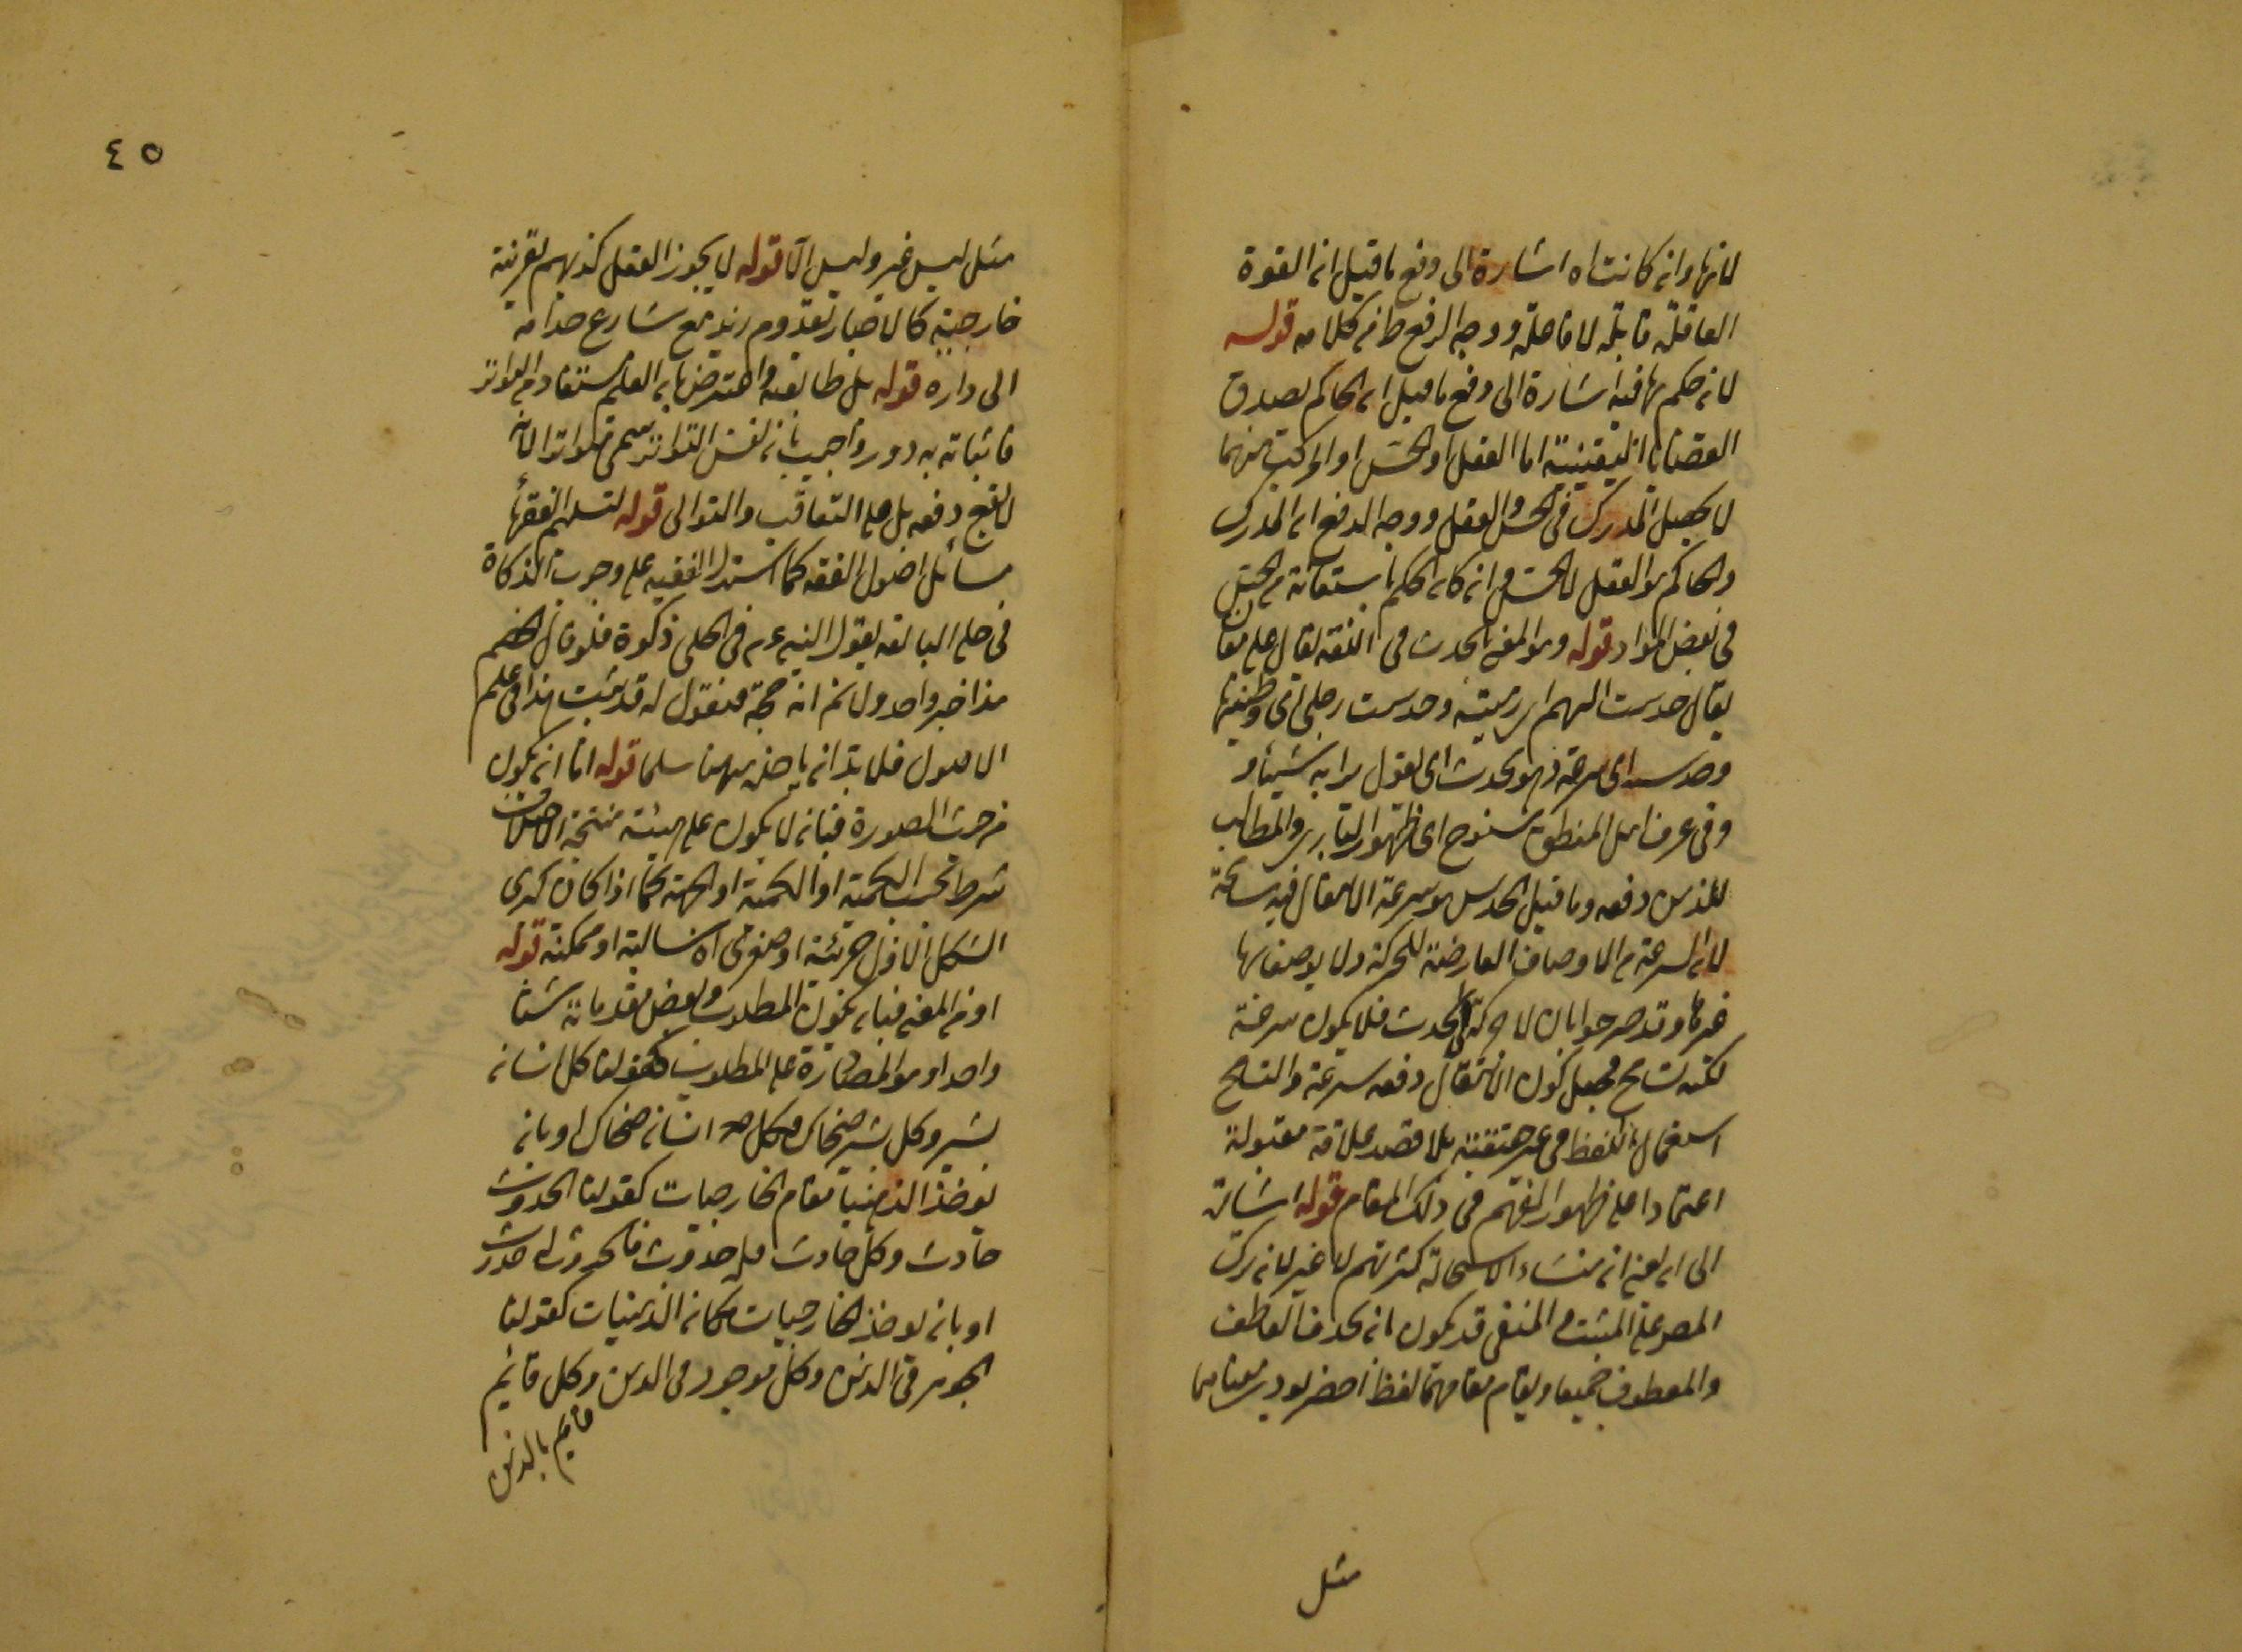 لانها وان كانت اه اشارة الى دفع ما قيل ان القوة
العاقلة قابلة لا فاعلة ووجه الدفع ظ من كلامه قوله
لان حكم بها فيه اشارة الى دفع ما قيل ان الحاكم بصدق
القضايا اليقينية اما العقل او الحس او المركب منهما
لا يحصل المدرك في الحس والعقل ووجه الدفع ان المدرك
والحاكم هو العقل لا الحس وان كان الحكم باستعانة من الحس
في بعض المواد قوله وهو المغير الحدث في اللغة يقال على معان
يقال حدست السهم اي رميته وحدست رجلي اي وطئتها
وحدس اي سرعة وهو يحدث اي يقول برأيه شيئا و
وفي عرف اهل المنطق سنوح اي ظهور المبادي والمطالب
للذهن دفعة وما قيل الحدس هو سرعة الانتقال فيه مسامحة
لان السرعة من الاوصاف العارضة للحركة ولا يوصف بها
غيرها وقد صرحوا بان لا حركة في الحدث فلا يكون سرعة
لكنه تسامح فجعل كون الانتقال دفعة سرعة والتسامح
استعمال اللفظ في غير حقيقته بلا قصد علاقة مقبولة
اعتمادا على ظهور الفهم في ذلك المقام قوله اشارة
الى ان يعني ان منشاء الاستحالة كثرتهم لا غير لانه ترك
المصر على المثبت والمنفي قد يكون بان يحذف العاطف
والمعطوف جميعا ويقام مقامهما لفظ اخصر يؤدي معناهما
مثل
٤٥
مثل ليس غير وليس الا قوله لا يجوز العقل كذبهم لقرينة
خارجية كالاخبار بقدوم زيد مع تسارع خدامه
الى داره قوله بل طابعه واعترض بان العلم مستفاد من التواتر
فاثباته به دور واجيب بان نفس التواتر سمى تواترا لانه
لا يقع دفعة بل على التعاقب والتوالى قوله لتسلم الفقهاء
مسائل اصول الفقه كما استدل الفقيه على وجوب الزكاة
في حلى البالغة بقول النبي عم في الحلى زكوة فلو قال الخصم
هذا خبر واحد ولا نم انه حجة فنقول له قد ثبت هذا في علم
الاصول فلا بد ان ياخذه ههنا مسلما قوله اما ان يكون
من حيث الصورة فبان لا يكون على هيئة منتجة لاختلاف
شرط بحسب الكمية او الكيفية او الجهة كما اذا كان كبرى
الشكل الاول جزئية او صغرى اه سالبة او ممكنة قوله
او من المغير فبان يكون المطلوب وبعض مقدماته شيئا
واحدا وهو المصادرة على المطلوب كقولنا كل انسان
بشر وكل بشر ضحاك فكل انسان ضحاك او بان
يوخذ الذهنيات مقام الخارجيات كقولنا الحدوث
حادث وكل حادث فله حدوث فالحدوث له حدوث
او بان يوخذ الخارجيات مكان الذهنيات كقولنا
الجوهر في الذهن وكل موجود في الذهن وكل قائم
قائم بالذهن